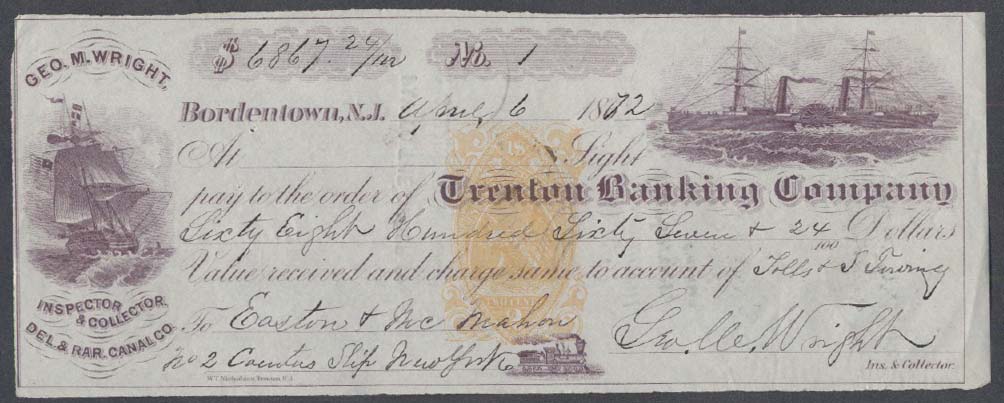 GEO. M. WRIGHT,
INSPECTOR
& COLLECTOR,
DEL. & RAR. CANAL CO.
$ 6867. 24/100 No. 1
Bordentown, N.J. April 6 1872
At Sight
pay to the order of Trenton Banking Company
Sixty Eight Hundred Sixty Seven & 24/100 Dollars
Value received and charge same to account of Tolls & S Towing
To Easton & McMahon
No 2 Coenties Slip New York
Geo. M. Wright
Ins. & Collector.
W.T. Nicholson, Trenton, N.J.